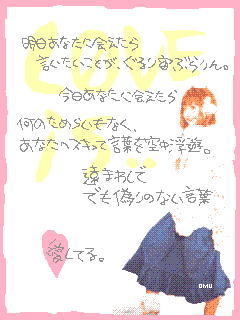 LOVE
is...
明日あなたに会えたら
言いたいことが、ぐるり宙ぶらりん。
今日あなたに会えたら
何のためらいもなく、
あなたへスキって言葉を空中浮遊。
遠まわしで
でも偽りのない言葉
愛してる。
OMU